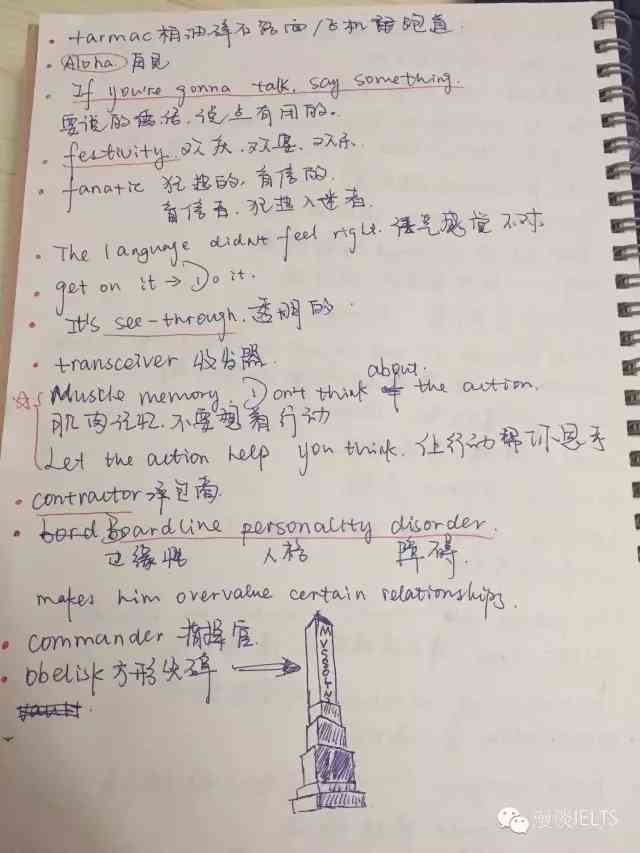 · tarmac 柏油碎石路面/飞机跑道
· Aloha. 再见
· If you're gonna talk, say something.
要说的话, 说点有用的。
· festivity 欢庆、欢宴、欢乐
· fanatic 狂热的, 盲信的
盲信者、狂热入迷者.
· The language didn't feel right. 语气感觉不对
· get on it → Do it.
· It's see-through. 透明的
· transceiver 收发器
about.
☆ Muscle memory Don't think the action.
肌肉记忆. 不要想着行动
Let the action help you think. 让行动帮你思考
· contractor 承包商
· bord Boardline personality disorder.
边缘性 人格 障碍.
makes him overvalue certain relationships.
· commander 指挥官
· obelisk 方形尖碑
MUSSOLINI
漫谈IELTS